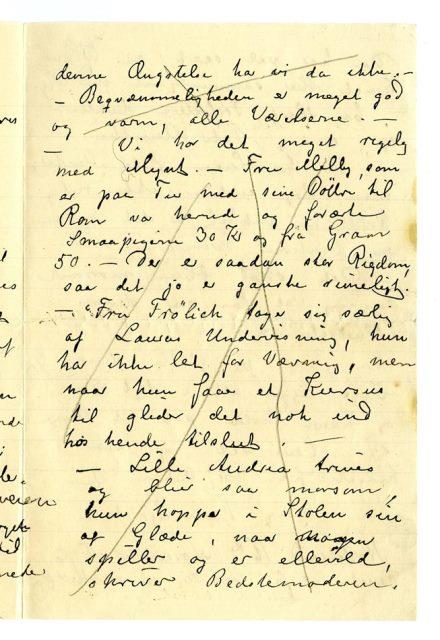 denne Ængstelse har vi da ikke. –
– Beqvæmmeligheden er meget god
og varm, alle Værelserne. –
Vi har det meget rigelig
med Mynt. – Fru Melby, som
er paa Tur med sine Döttre til
Rom var herude og forærte
Smaapigerne 30 Kr og fra Gram
50. – Der er saadan stor Rigdom,
saa det jo er ganske rimeligt.
– "Fru Frölich tager sig særlig
af Lauras Undervisning, hun
har ikke let for Vævning, men
naar hun faar et Kursus
til glider det nok ind
hos hende tilslut. –
– Lille Andrea trives
og blir saa morsom,
hun hopper i Stolen sin
af Glæde, naar nogen
spiller og er ellevild,
skriver Bedstemoderen.